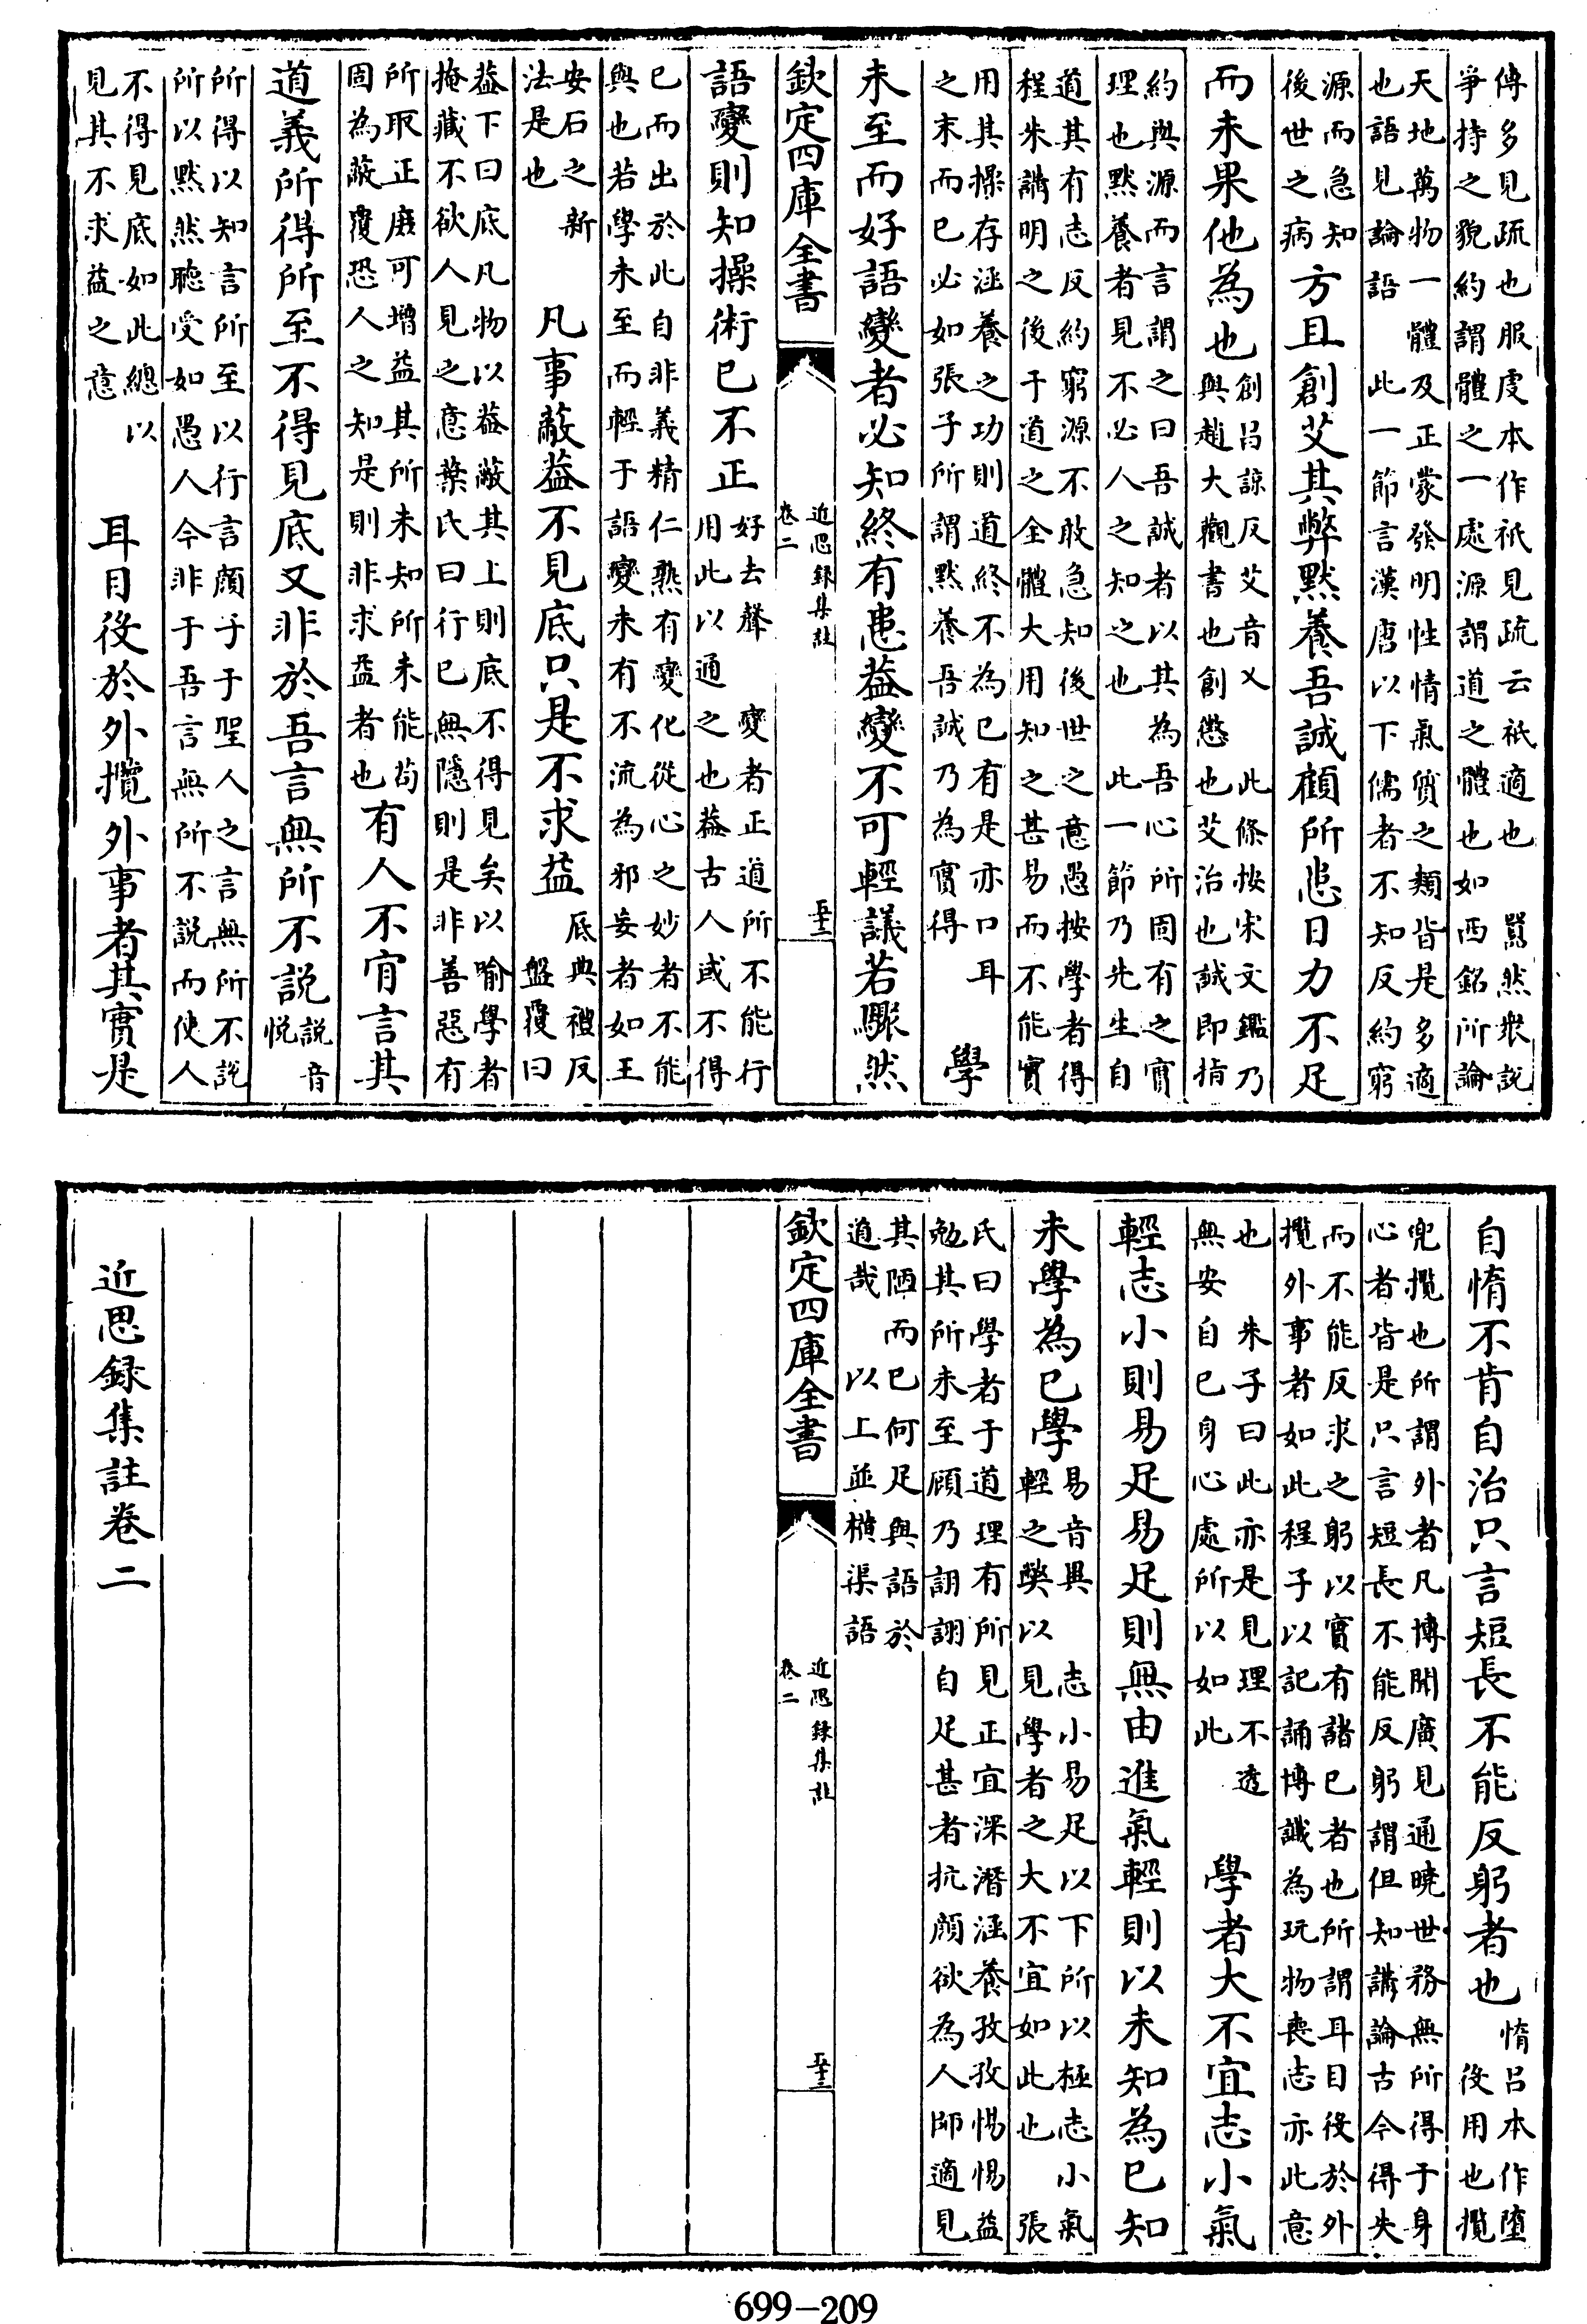 傳多見疏也服虔本作祇見疏云祇適也 嚻然衆說
爭持之貌約謂體之一處源謂道之體也如西銘所論
天地萬物一體及正蒙發明性情氣質之類皆是多適
也語見論語 此一節言漢唐以下儒者不知反約窮
源而急知後世之病方且創艾其弊默養吾誠顧所患日力不足
而未果他為也創呂諒反艾音乂 此條按宋文鑑乃與趙大觀書也創懲也艾治也誠即指
約與源而言謂之曰吾誠者以其為吾心所固有之實
理也默養者見不必人之知之也 此一節乃先生自
道其有志反約窮源不敢急知後世之意愚按學者得
程朱講明之後于道之全體大用知之甚易而不能實
用其操存涵養之功則道終不為已有是亦口耳之末而已必如張子所謂默養吾誠乃為實得 學
未至而好語變者必知終有患葢變不可輕議若驟然
欽定四庫全書 近思録集註 卷二 五十二
語變則知操術已不正好去聲 變者正道所不能行用此以通之也葢古人或不得
已而出於此自非義精仁熟有變化從心之妙者不能
與也若學未至而輕于語變未有不流為邪妄者如王
安石之新法是也 凡事蔽葢不見底只是不求益底典禮反盤覆曰
葢下曰底凡物以葢蔽其上則底不得見矣以喻學者
掩藏不欲人見之意葉氏曰行已無隱則是非善惡有
所取正庶可增益其所未知所未能苟固為蔽覆恐人之知是則非求益者也有人不肯言其
道義所得所至不得見底又非於吾言無所不說說音悅
所得以知言所至以行言顔子于聖人之言無所不說
所以默然聽受如愚人今非于吾言無所不說而使人
不得見底如此總以見其不求益之意 耳目役於外攬外事者其實是
自惰不肯自治只言短長不能反躬者也惰呂本作墮役用也攬
兜攬也所謂外者凡博聞廣見通曉世務無所得于身
心者皆是只言短長不能反躬謂但知講論古今得失
而不能反求之躬以實有諸已者也所謂耳目役於外
攬外事者如此程子以記誦博識為玩物喪志亦此意
也 朱子曰此亦是見理不透無安自已身心處所以如此 學者大不宜志小氣
輕志小則易足易足則無由進氣輕則以未知為已知
未學為已學易音異 志小易足以下所以極志小氣輕之獘以見學者之大不宜如此也 張
氏曰學者于道理有所見正宜深潛涵養孜孜惕惕益
勉其所未至顧乃詡詡自足甚者抗顔欲為人師適見
其陋而已何足與語於道哉 以上並橫渠語
欽定四庫全書 近思録集註 卷二 五十三
近思録集註卷二
699-209